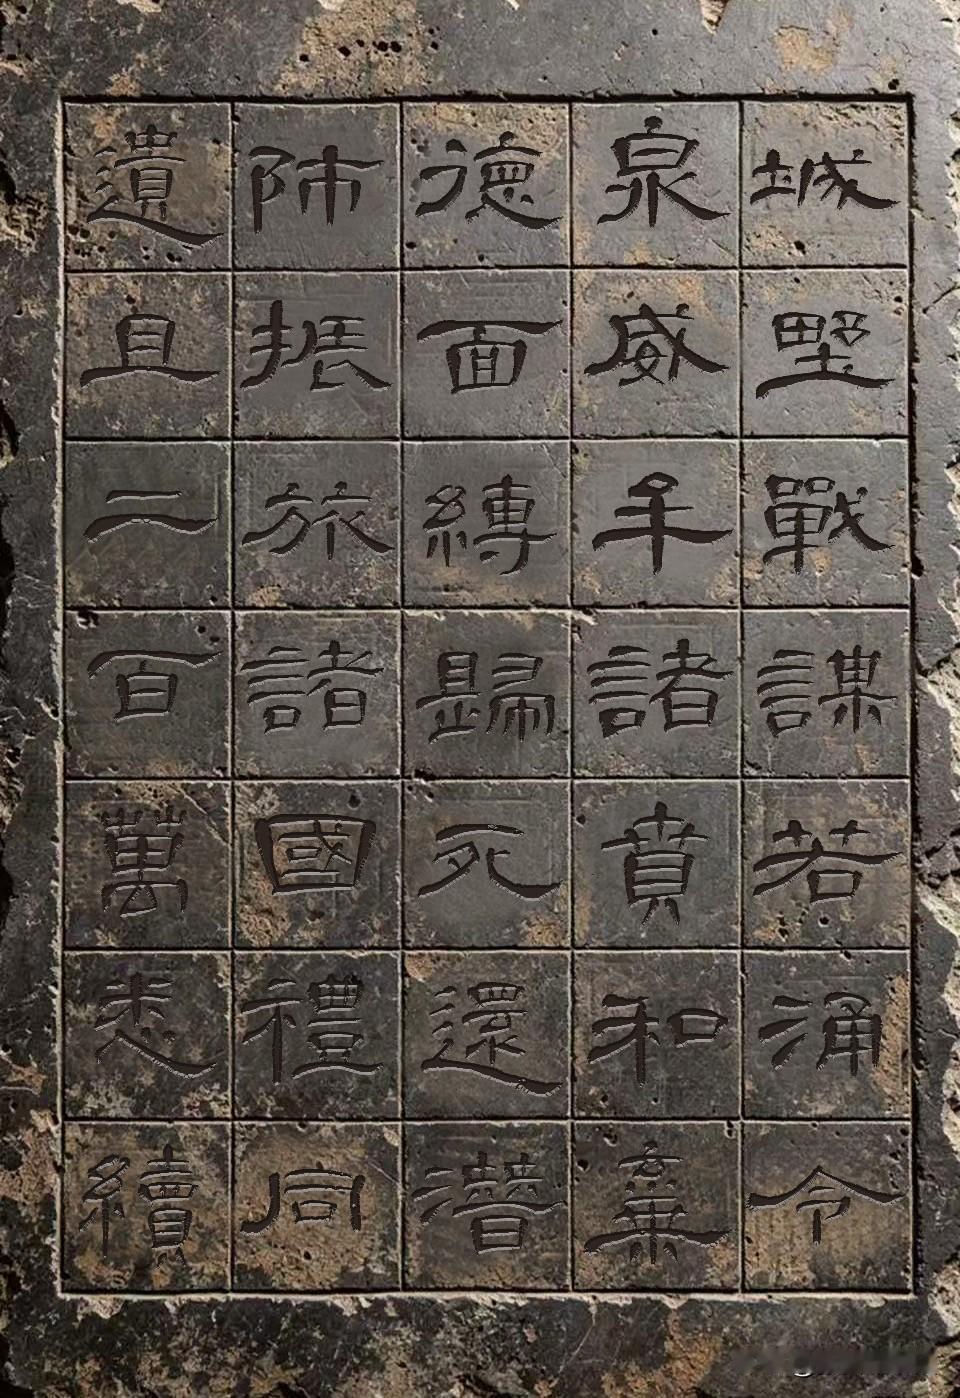 城野戰謀若涌令
泉威牟諸賁和棄
德面縛歸死還潛
師振旅諸國禮同
遺且二百萬悉續